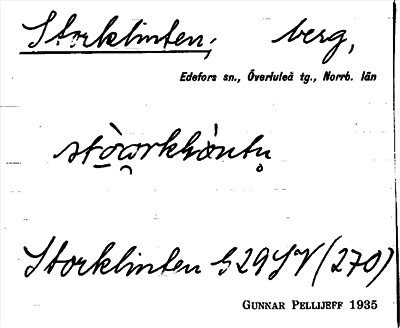 Storklinten, berg,
Edefors sn., Överluleå tg., Norrb. län
Storklinten G29SV (270)
GUNNAR PELLIJEFF 1935